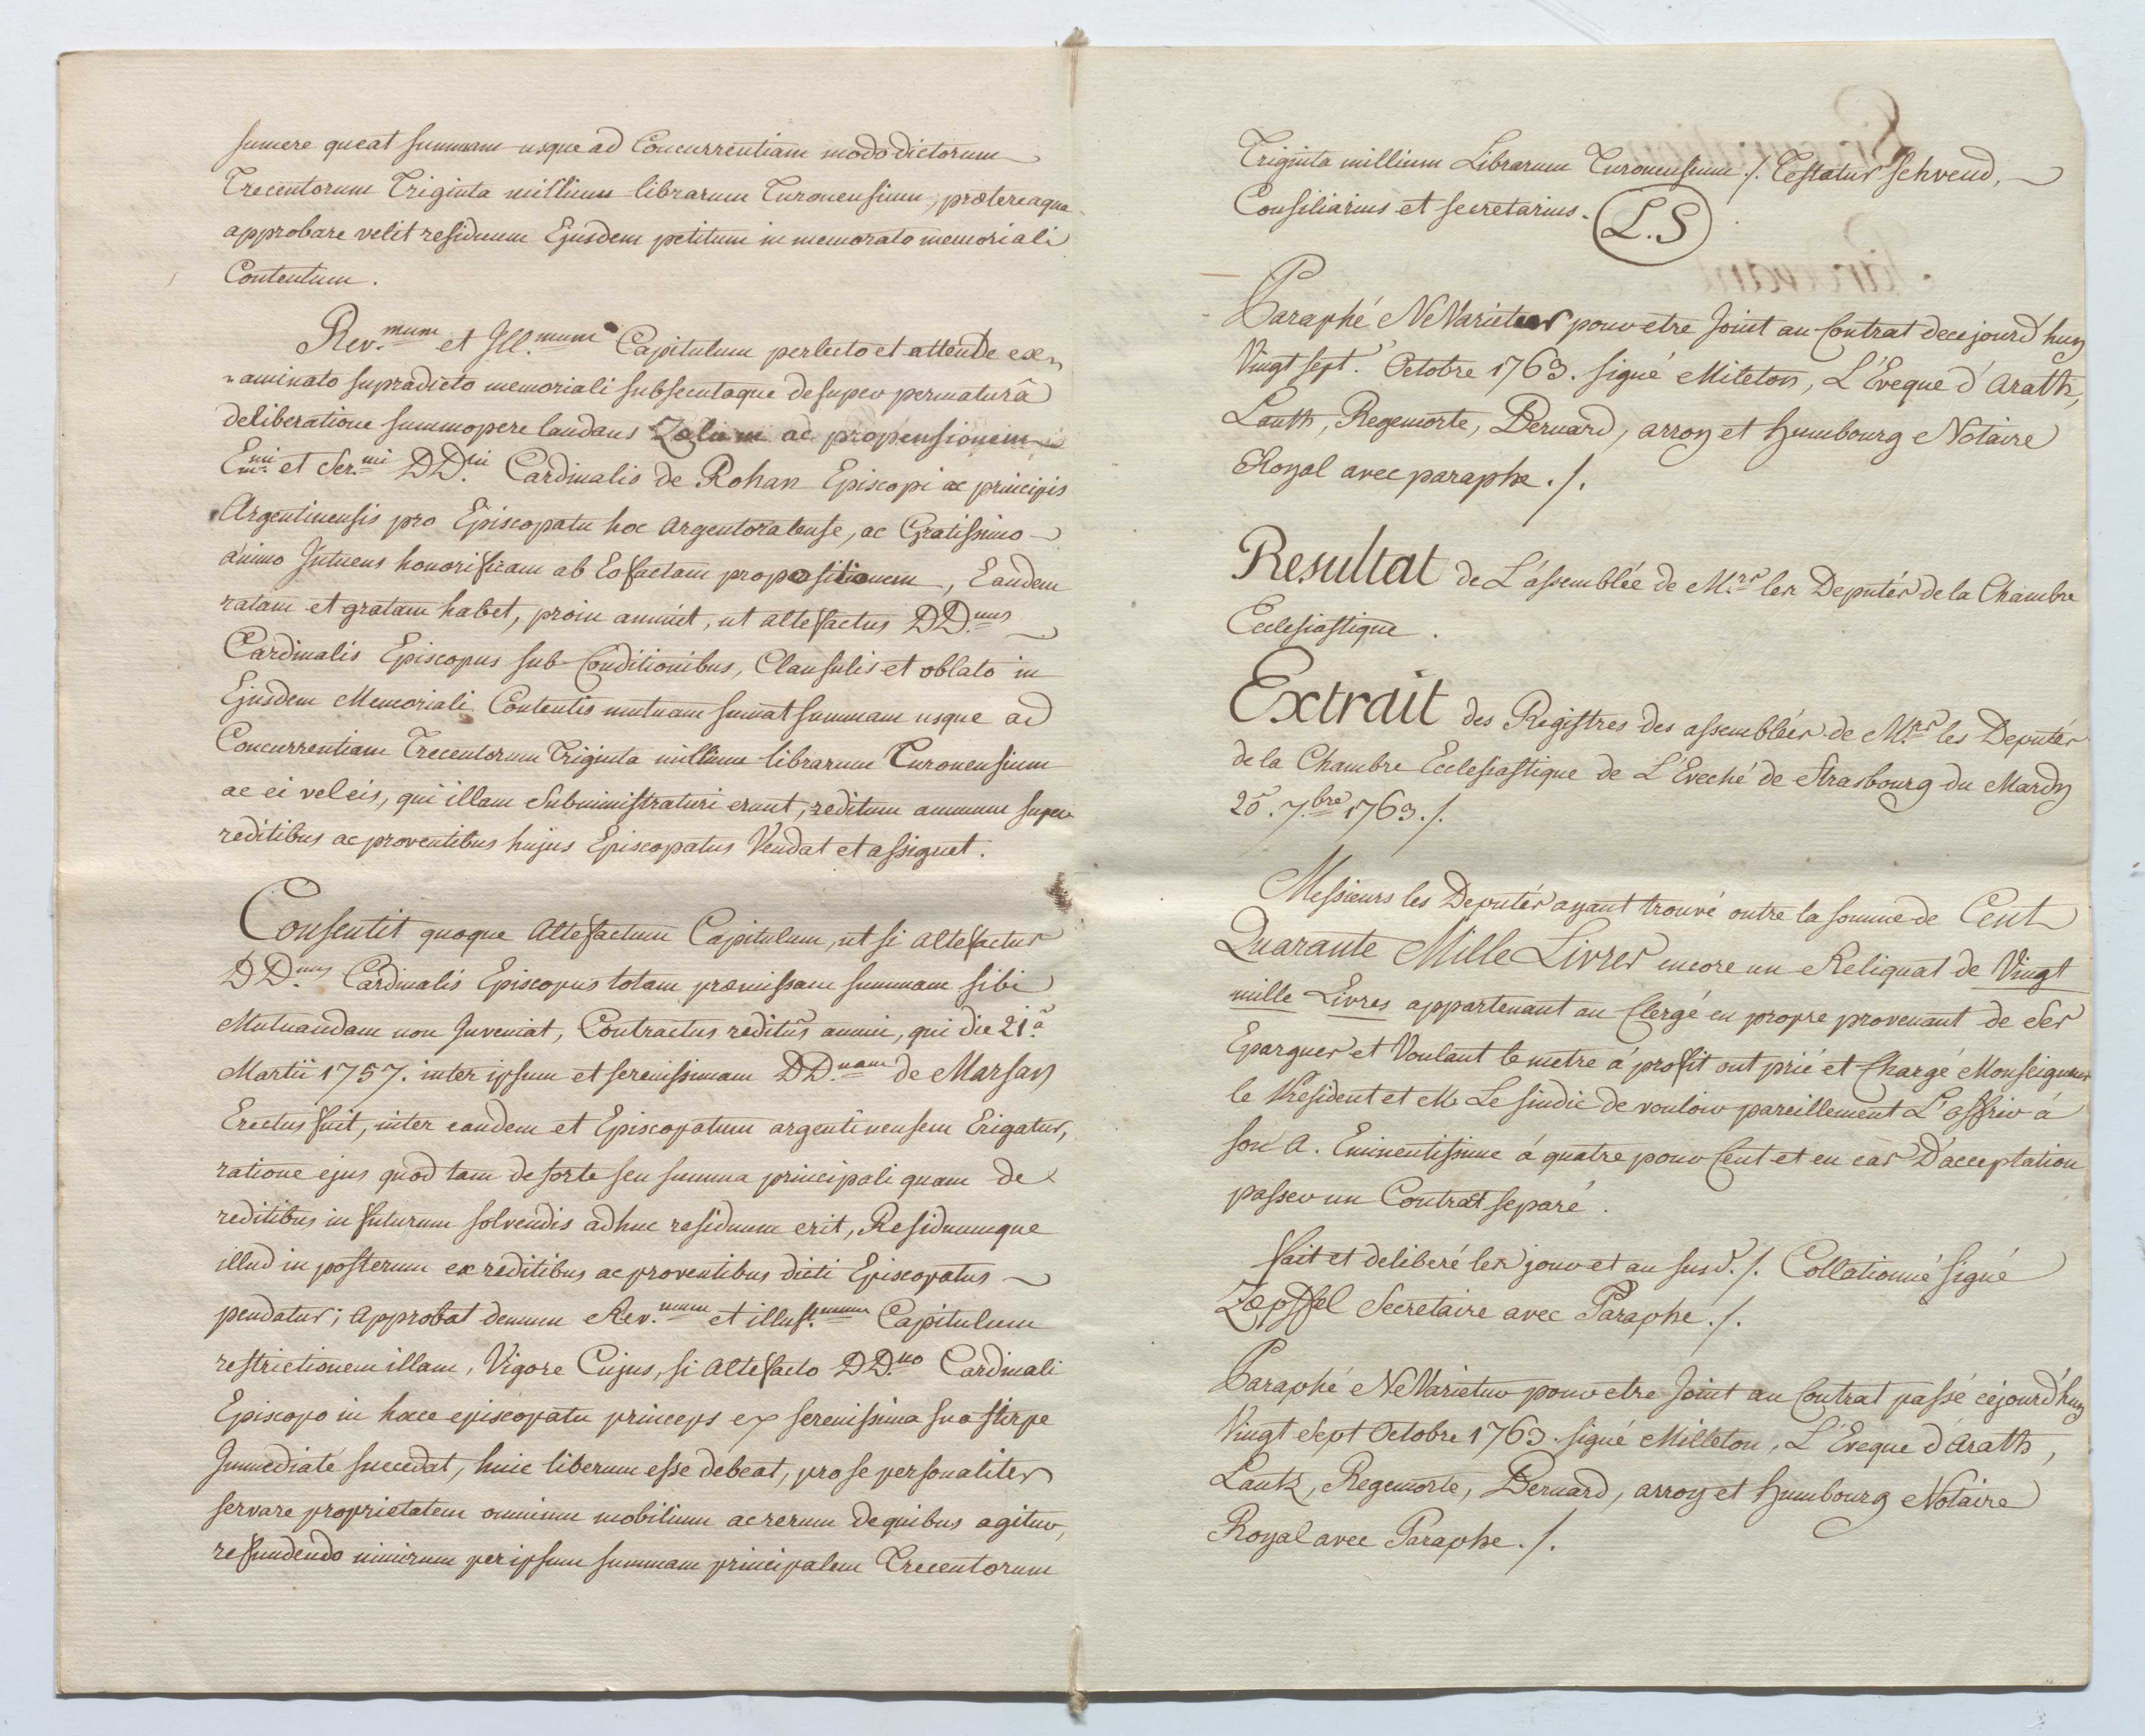 sumere queat summam usque ad Concurrentiam modo dictorum
Trecentorum Triginta millium librarum Turonensium, prætereaque
approbare velit residuum Ejusdem petitum in memorato memoriali
Contentum.
Rev.mum et Ill.mum Capitulum perlecto et attente ex-
-aminato supradicto memoriali subsecutaque desuper permaturâ
deliberatione summopere laudans Zelum ac propensionem
Emi. et Ser.mi DD.ni Cardinalis de Rohan Episcopi ac principis
Argentinensis pro Episcopatu hoc Argentoratense, ac Gratissimo
animo Intuens honorificam ab Eo factam propositionem, Eandem
ratam et gratam habet, proin annuit, ut altefactus DD.nus
Cardinalis Episcopus sub Conditionibus, Clausulis et oblato in
Ejusdem Memoriali Contentis mutuam sumat summam usque ad
Concurrentiam Trecentorum Triginta millium librarum Turonensium
ac ei vel eis, qui illam Subministraturi erunt, reditum annuum super
reditibus ac proventibus hujus Episcopatus Vendat et assignet.
Consentit quoque Altefactum Capitulum, ut si altefactus
DD.nus Cardinalis Episcopus totam præmissam summam sibi
Mutuandam non Inveniat, Contractus reditûs annui, qui die 21.â
Martii 1757. inter ipsum et serenissimam DD.nam de Marsan
Erectus fuit, inter eandem et Episcopatum argentinensem Erigatur,
ratione ejus quod tam de sorte seu summa principali quam de
reditibus in futurum solvendis adhuc residuum erit, Residuumque
illud in posterum ex reditibus ac proventibus dicti Episcopatus
pendatur; approbat demum Rev.mum et illust.mum Capitulum
restrictionem illam, Vigore Cujus, si altefacto DD.no Cardinali
Episcopo in hocce episcopatu princeps ex serenissima sua stirpe
Immediaté succedat, huic liberum esse debeat, pro se personaliter
servare proprietatem omnium mobilium ac rerum de quibus agitur,
refundendo nimirum per ipsum summam principalem Trecentorum
Triginta millium Librarum Turonensium ./. Testatur Schvend,
Consiliarius et secretarius. L.S
Paraphé Ne Varietur pour etre Joint au Contrat de cejourd'huy
Vingt sept. Octobre 1763. signé Miteton, L'Eveque d'Arath,
Lauth, Regemorte, Bernard, arroy et Humbourg Notaire
Royal avec paraphe ./.
Resultat de L'assemblée de M.rs les Deputés de la Chambre
Ecclesiastique.
Extrait des Registres des assemblées de M.rs les Deputés
de la Chambre Ecclesiastique de L'Eveché de Strasbourg du Mardy
20. 7.bre 1763 ./.
Messieurs les Deputés ayant trouvé outre la somme de Cent
Quarante Mille Livres encore un Reliquat de Vingt
mille Livres appartenant au Clergé en propre provenant de Ses
Epargnes et Voulant le metre á profit ont prié et Chargé Monseigneur
le President et M. Le sindic de vouloir pareillement L'offrir á
son A. Eminentissime á quatre pour Cent et en cas D'acceptation
passer un Contrat separé.
fait et deliberé les jour et an susd. ./. Collationné signé
Zæpffel Secretaire avec Paraphe ./.
Paraphé Ne Varietur pour etre Joint au Contrat passé cejourd'huy
Vingt Sept Octobre 1763. signé Milleton, L'Eveque d'Arath,
Lautz, Regemorte, Bernard, arroy et Humbourg Notaire
Royal avec Paraphe ./.